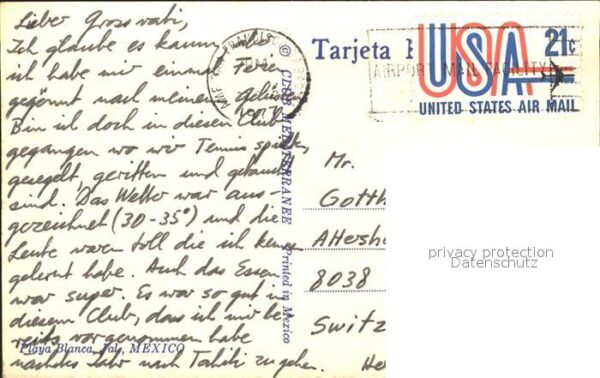 Lieber Grossrabi,
Ich glaube es kaum, aber
ich habe mir einmal Ferien
gegönnt nach meinem
Bin ich doch in diesen Club
gegangen wo wir Tennis spielten,
gesegelt, geritten und getaucht
sind. Das Wetter war aus-
gezeichnet (30-35°) und die
Leute waren toll die ich kennen
gelernt habe. Auch das Essen
war super. Es war so gut in
diesem Club, dass ich mir be
reits vorgenommen habe
nächstes Jahr nach Tahiti zu gehen.
Playa Blanca, Jal., MEXICO
© CLUB MEDITERRANEE Printed in Mexico
Tarjeta
AIRPORT MAIL FACILITY
USA 21c
UNITED STATES AIR MAIL
Mr.
Gotth
Attersh
8038
Switz
He
privacy protection
Datenschutz